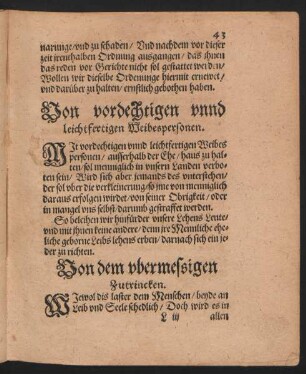 43
narunge/vnd zu schaden/ Vnd nachdem vor dieser
zeit irenthalben Ordnung ausgangen/ das ihnen
das reden vor Gerichte nicht sol gestattet werden/
Wollen wir dieselbe Ordenunge hiermit ernewet/
vnd darüber zu halten/ ernstlich gebothen haben.
Von vordechtigen vnnd
leichtfertigen Weibespersonen.
MIt vordechtigen vnnd leichtfertigen Weibes
personen/ ausserhalb der Ehe/ haus zu hal-
ten/ sol menniglich in vnsern Landen verbo-
ten sein/ Wird sich aber jemands des vnterstehen/
der sol vber die verkleinerung so jme von menniglich
daraus erfolgen wirdet/ von seiner Obrigkeit/ oder
in mangel vns selbst/ darumb gestraffet werden.
So beleihen wir hinfürder vnsere Lehens Leute/
vnd mit ihnen keine andere/ denn ire Menliche ehe-
liche geborne Leibs lehens erben/ darnach sich ein je-
der zu richten.
Von dem vbermessigen
Zutrincken.
WIewol dis laster dem Menschen/ beyde an
Leib vnd Seele schedlich/ Doch wird es in
L iij allen